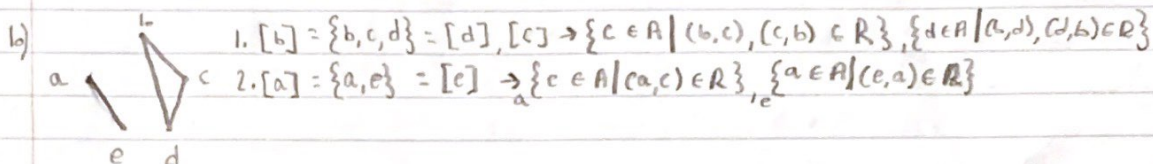 b)
b
1. [b] = {b,c,d} = [d], [c] → {c ∈ A | (b,c), (c,b) ∈ R}, {d∈A | (b,d), (d,b)∈R}
a c 2. [a] = {a,e} = [e] →a {e ∈ A | (a,e) ∈ R}, e {a ∈ A | (e,a) ∈ R}
e d